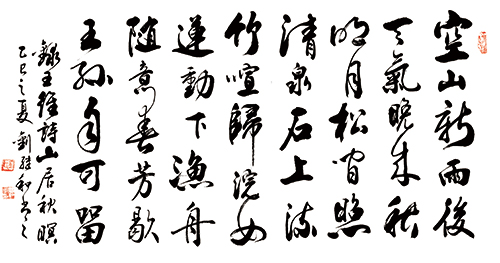 空山新雨後
天氣晚来秋
明月松间照
清泉石上流
竹喧歸浣女
蓮動下漁舟
随意春芳歇
王孫自可留
錄王維詩山居秋暝
乙巳之夏